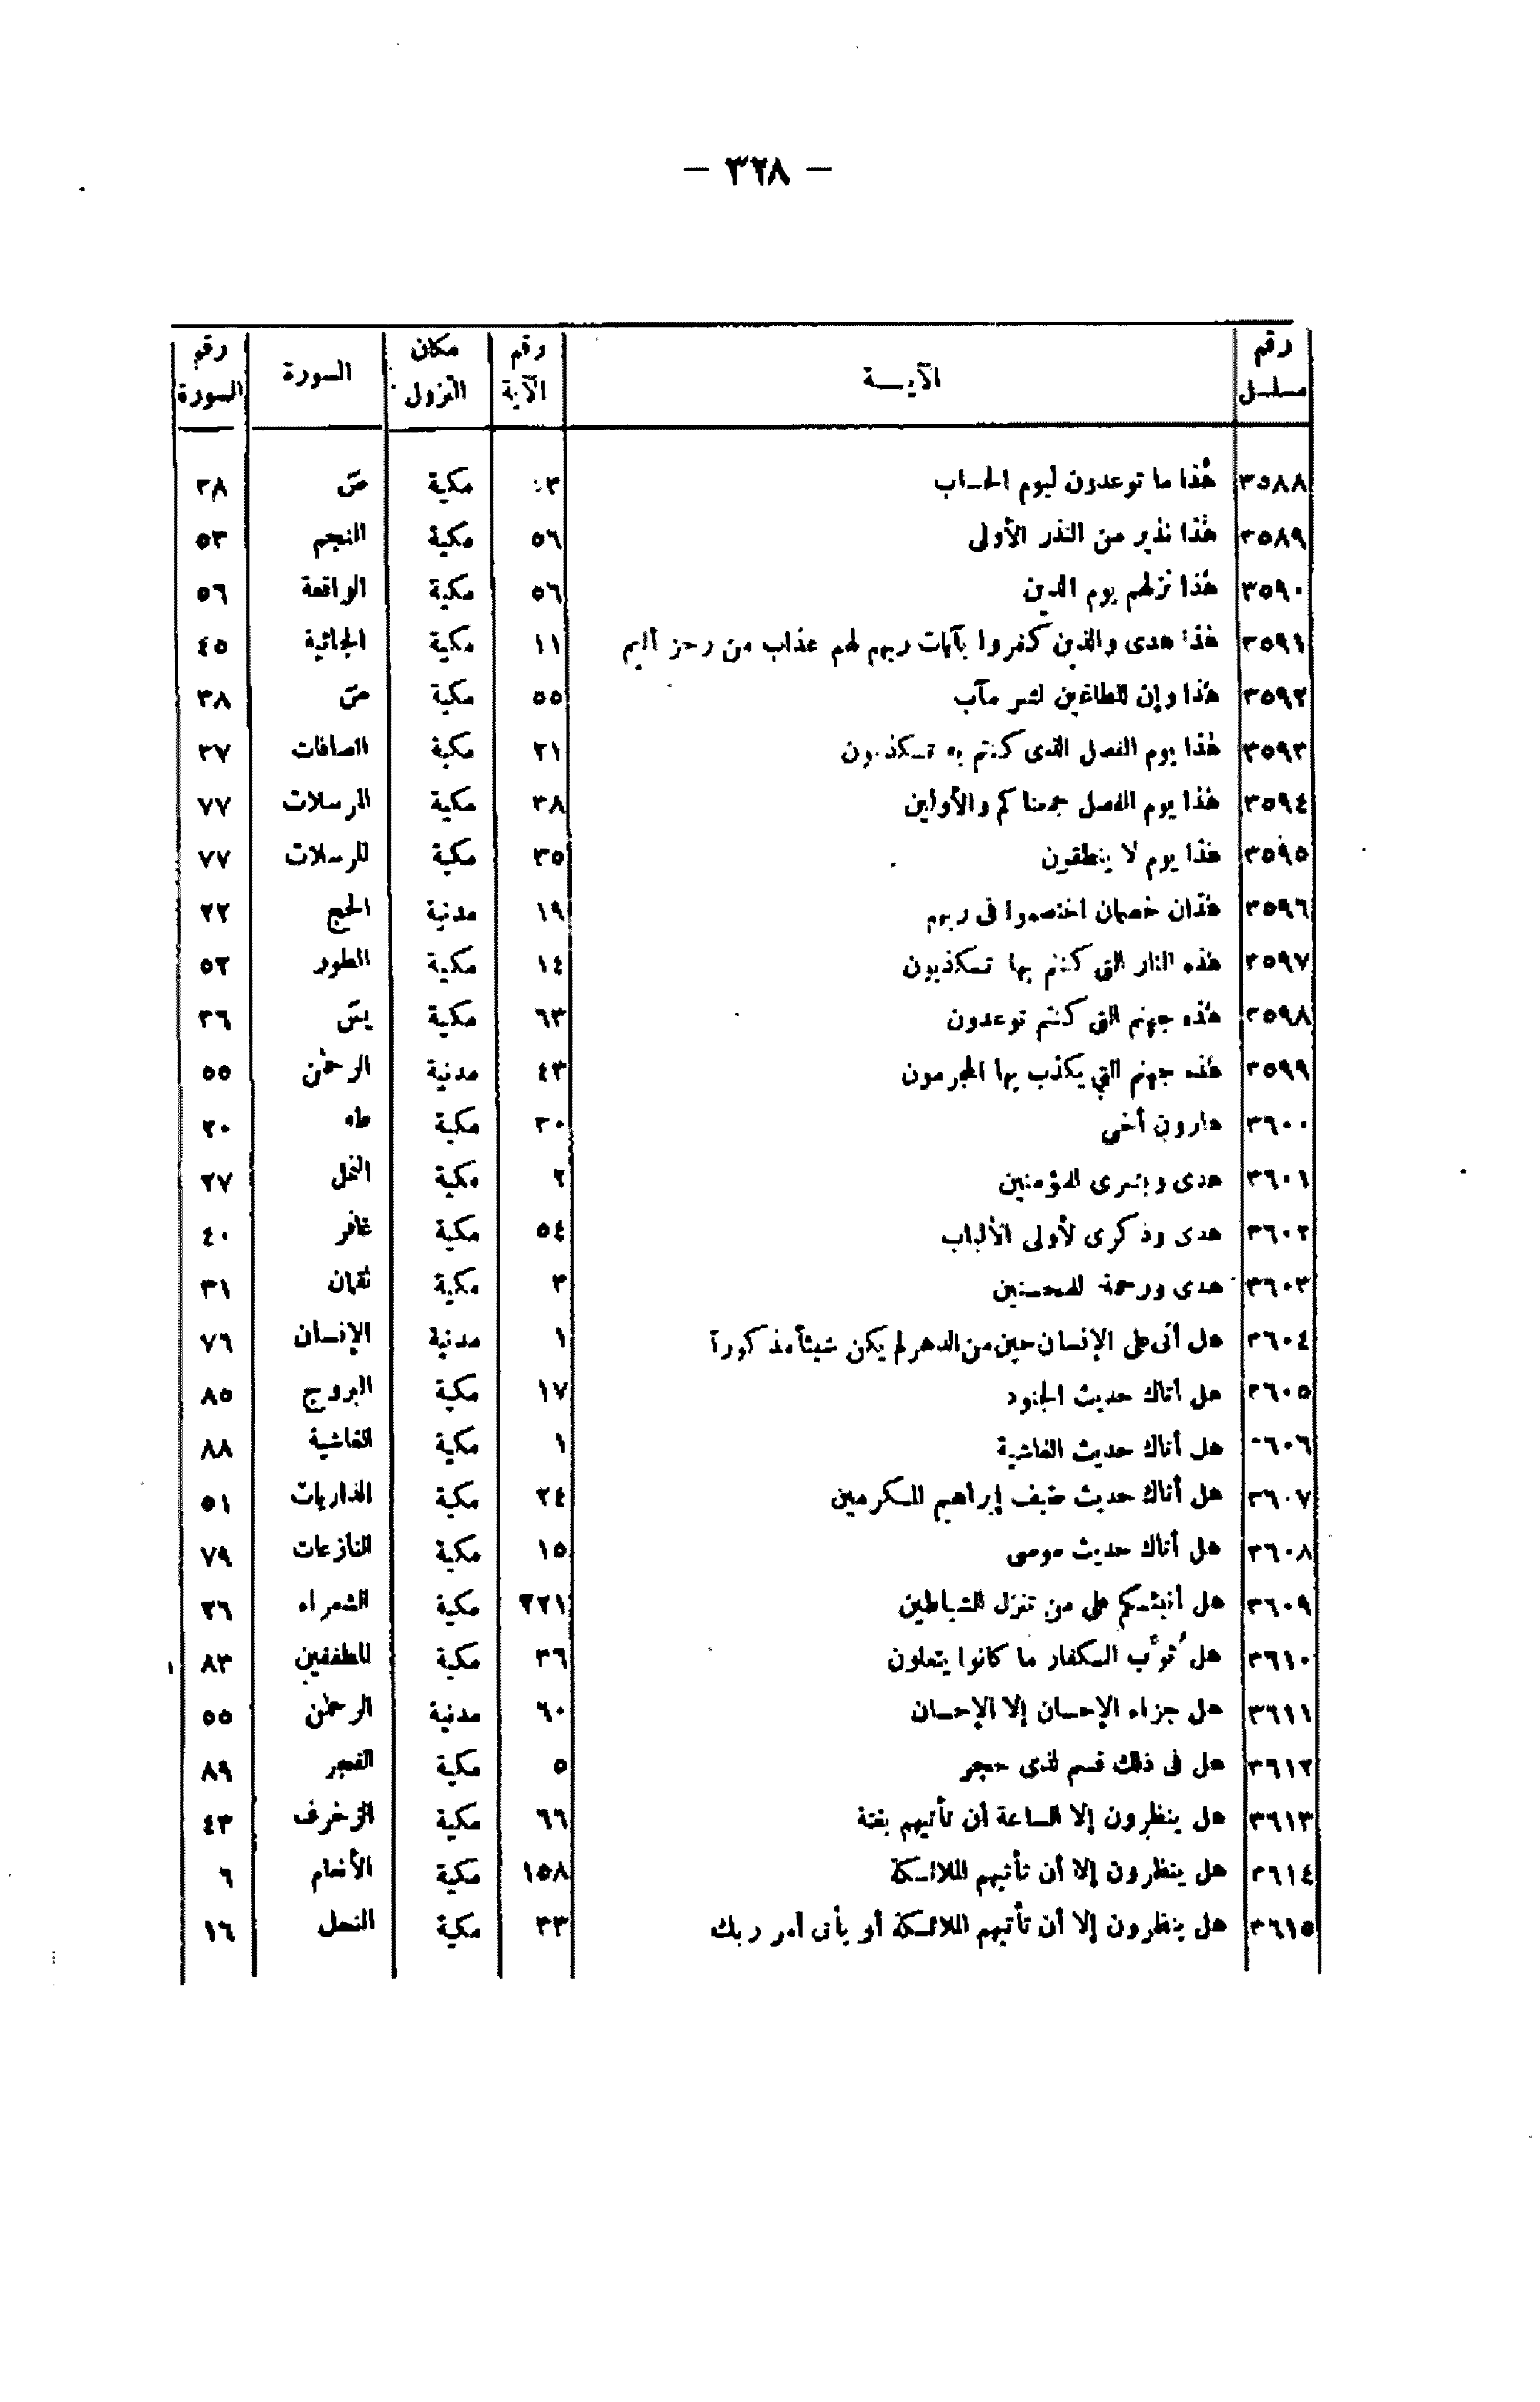 — ٣٢٨ —
رقم مسلسل | الآيـــة | رقم الآية | مكان النزول | السورة | رقم السورة
٣٥٨٨ | هٰذا ما توعدون ليوم الحساب | ٥٣ | مكية | صۤ | ٣٨
٣٥٨٩ | هٰذا نذير من النذر الأولى | ٥٦ | مكية | النجم | ٥٣
٣٥٩٠ | هٰذا نزلهم يوم الدين | ٥٦ | مكية | الواقعة | ٥٦
٣٥٩١ | هٰذا هدى والذين كفروا بآيات ربهم لهم عذاب من رجز أليم | ١١ | مكية | الجاثية | ٤٥
٣٥٩٢ | هٰذا وإن للطاغين لشر مآب | ٥٥ | مكية | صۤ | ٣٨
٣٥٩٣ | هٰذا يوم الفصل الذى كنتم به تكذبون | ٢١ | مكية | الصافات | ٣٧
٣٥٩٤ | هٰذا يوم الفصل جمعناكم والأولين | ٣٨ | مكية | المرسلات | ٧٧
٣٥٩٥ | هٰذا يوم لا ينطقون | ٣٥ | مكية | المرسلات | ٧٧
٣٥٩٦ | هٰذان خصمان اختصموا فى ربهم | ١٩ | مدنية | الحج | ٢٢
٣٥٩٧ | هٰذه النار التى كنتم بها تكذبون | ١٤ | مكية | الطور | ٥٢
٣٥٩٨ | هٰذه جهنم التى كنتم توعدون | ٦٣ | مكية | يسۤ | ٣٦
٣٥٩٩ | هٰذه جهنم التي يكذب بها المجرمون | ٤٣ | مدنية | الرحمٰن | ٥٥
٣٦٠٠ | هارون أخى | ٣٠ | مكية | طه | ٢٠
٣٦٠١ | هدى وبشرى للمؤمنين | ٢ | مكية | النمل | ٢٧
٣٦٠٢ | هدى وذكرى لأولى الألباب | ٥٤ | مكية | غافر | ٤٠
٣٦٠٣ | هدى ورحمة للمحسنين | ٣ | مكية | لقمان | ٣١
٣٦٠٤ | هل أتى على الإنسان حين من الدهر لم يكن شيئاً مذكوراً | ١ | مدنية | الإنسان | ٧٦
٣٦٠٥ | هل أتاك حديث الجنود | ١٧ | مكية | البروج | ٨٥
٣٦٠٦ | هل أتاك حديث الغاشية | ١ | مكية | الغاشية | ٨٨
٣٦٠٧ | هل أتاك حديث ضيف إبراهيم المكرمين | ٢٤ | مكية | الذاريات | ٥١
٣٦٠٨ | هل أتاك حديث موسى | ١٥ | مكية | النازعات | ٧٩
٣٦٠٩ | هل أنبئكم على من تنزل الشياطين | ٢٢١ | مكية | الشعراء | ٢٦
٣٦١٠ | هل ثُوِّب الكفار ما كانوا يفعلون | ٣٦ | مكية | المطففين | ٨٣
٣٦١١ | هل جزاء الإحسان إلا الإحسان | ٦٠ | مدنية | الرحمٰن | ٥٥
٣٦١٢ | هل فى ذلك قسم لذى حجر | ٥ | مكية | الفجر | ٨٩
٣٦١٣ | هل ينظرون إلا الساعة أن تأتيهم بغتة | ٦٦ | مكية | الزخرف | ٤٣
٣٦١٤ | هل ينظرون إلا أن تأتيهم الملائكة | ١٥٨ | مكية | الأنعام | ٦
٣٦١٥ | هل ينظرون إلا أن تأتيهم الملائكة أو يأتى أمر ربك | ٣٣ | مكية | النحل | ١٦